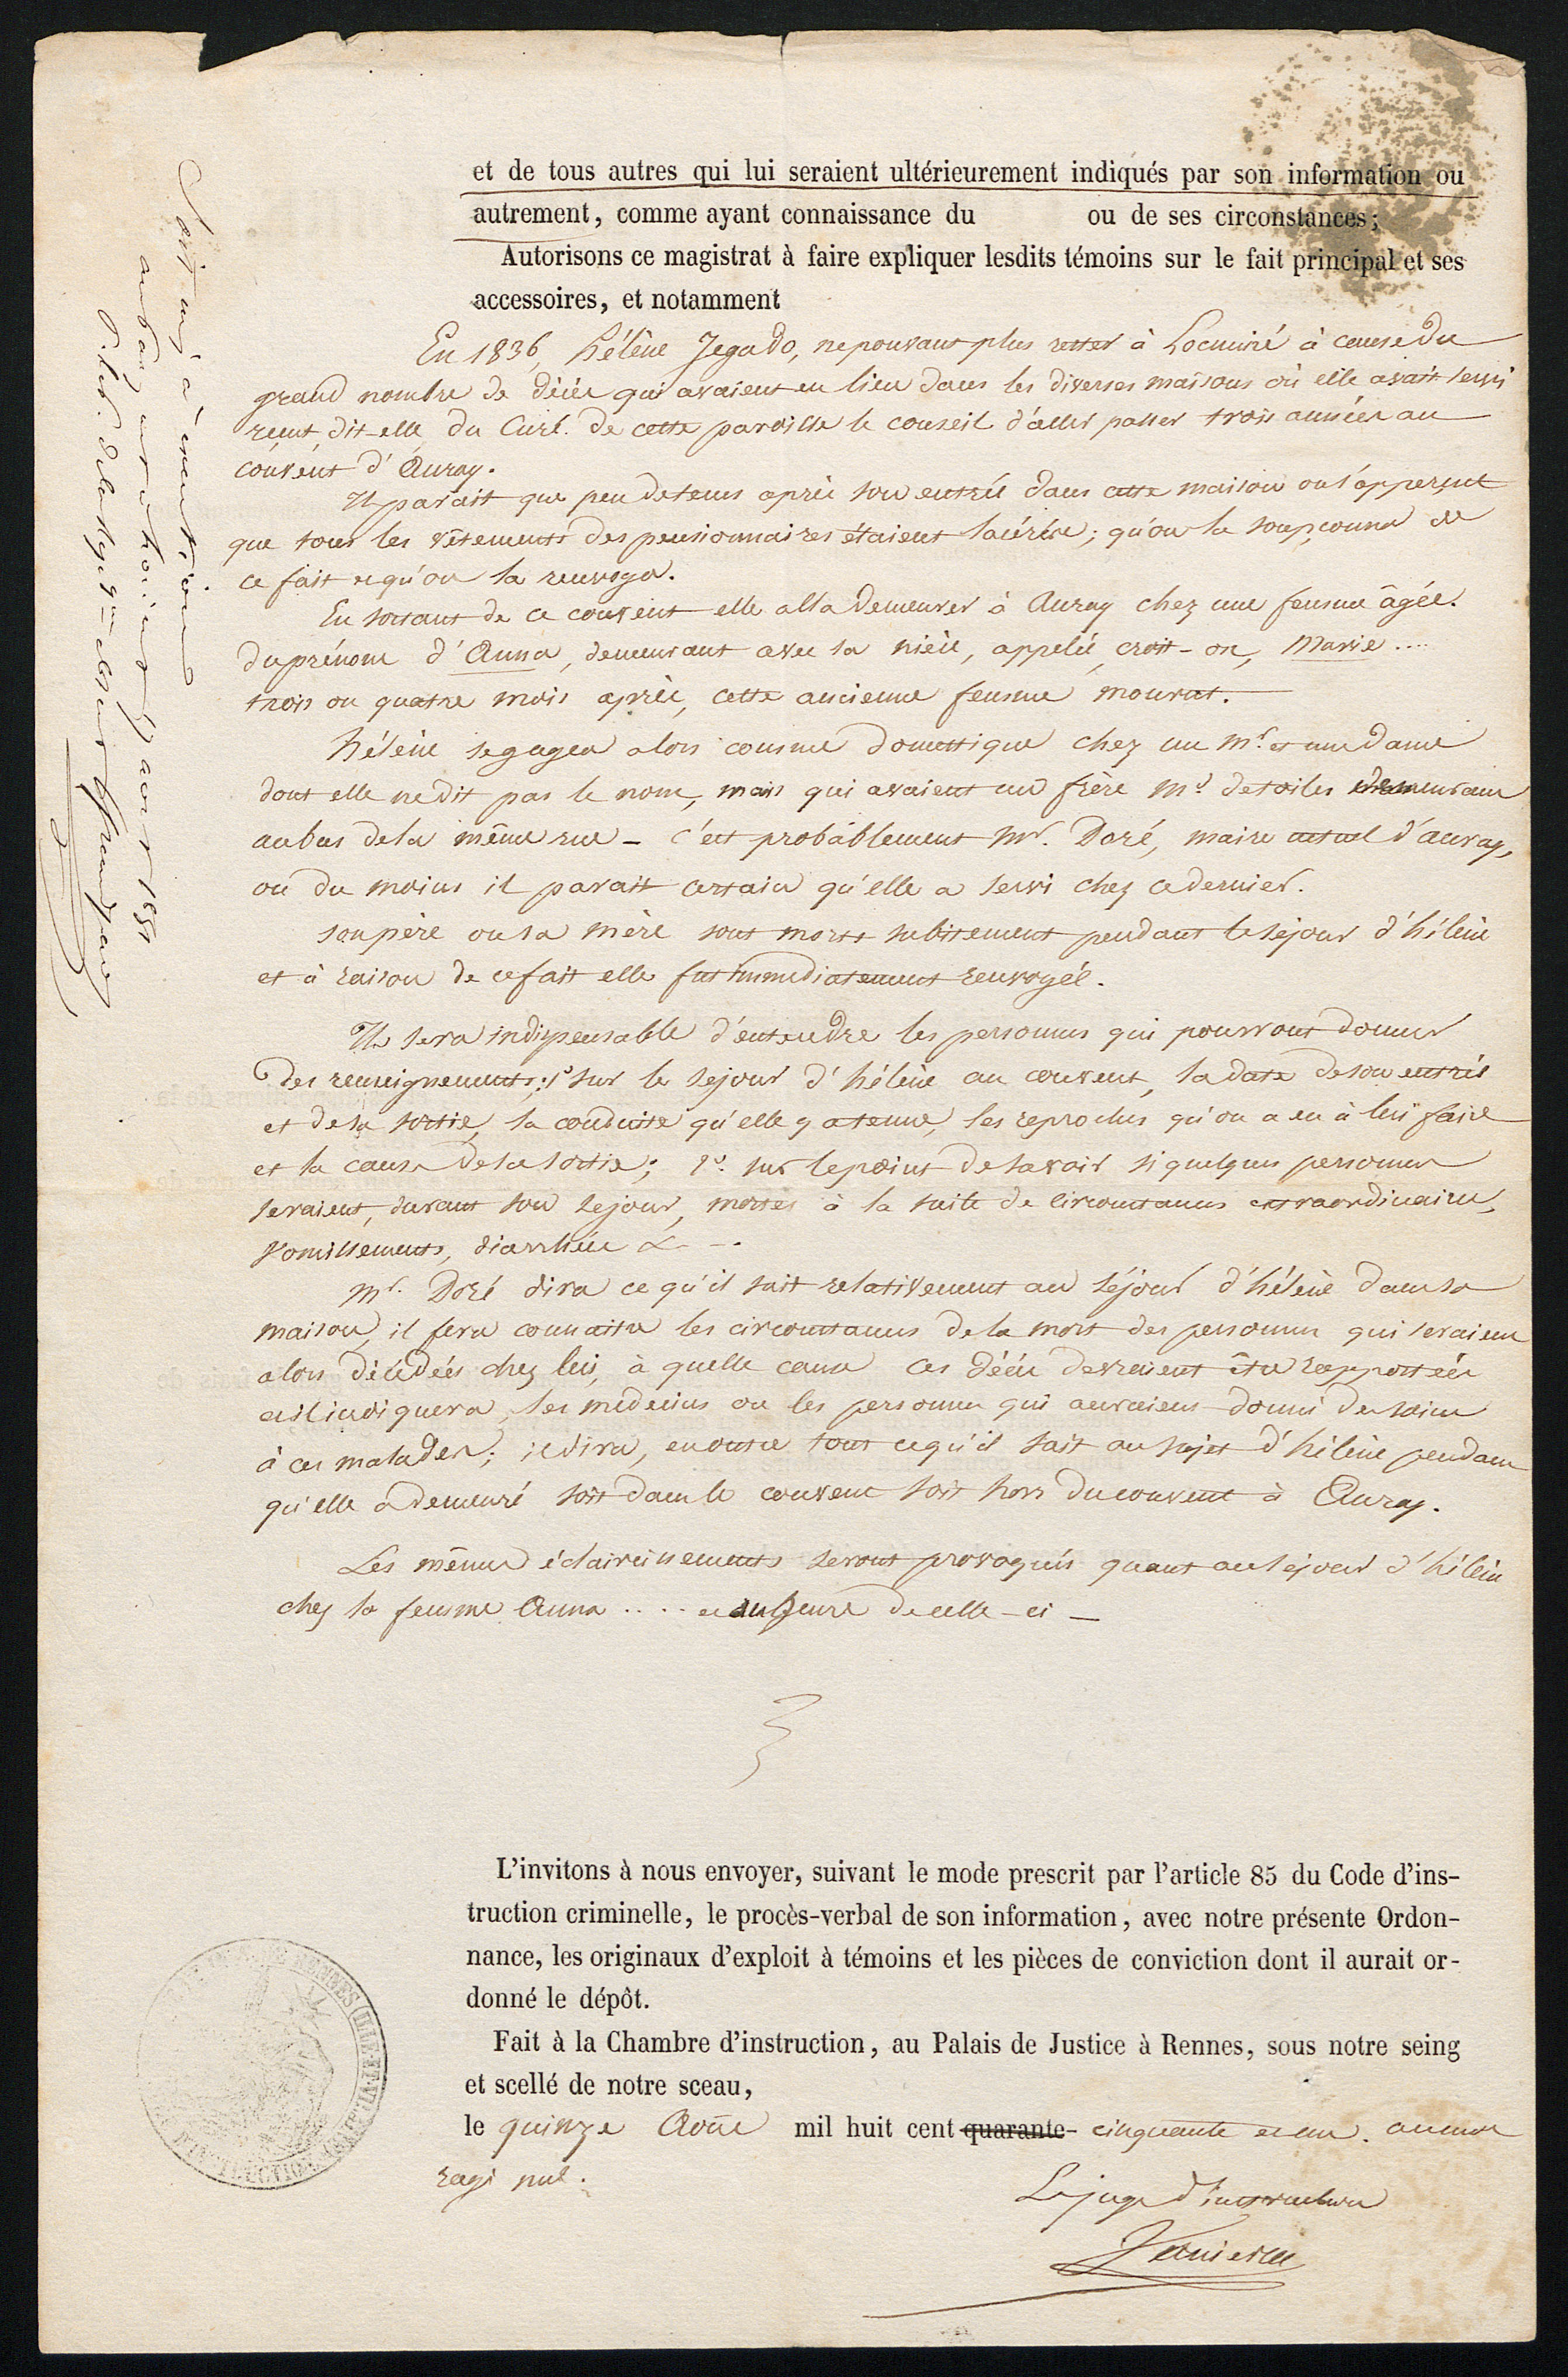 et de tous autres qui lui seraient ultérieurement indiqués par son information ou
autrement, comme ayant connaissance du ou de ses circonstances;
Autorisons ce magistrat à faire expliquer lesdits témoins sur le fait principal et ses
accessoires, et notamment
En 1836, hélène Jegado, ne pouvant plus rester à Locminé à cause du
grand nombre de décès qui avaient eu lieu dans les diverses maisons où elle avait servi
reçut, dit-elle, du Curé de cette paroisse le conseil d'aller passer trois années au
couvent d'Auray.
Il parait que peu de tems après son entrée dans cette maison on s'apperçut
que tous les vêtements des pensionnaires étaient lacérés; qu'on la soupçonna de
ce fait et qu'on la renvoya.
En sortant de ce couvent elle alla demeurer à Auray chez une femme âgée
du prénom d'Anna, demeurant avec sa nièce, appelée, croit-on, Marie....
trois ou quatre mois après, cette ancienne femme mourut.
hélène se gagea alors comme domestique chez un mr. et une dame
dont elle ne dit pas le nom, mais qui avaient un frère md. de toiles demeurant
au bas de la même rue - c'est probablement mr. Doré, maire actuel d'auray,
ou du moins il parait certain qu'elle a servi chez ce dernier.
son père ou sa mère sont morts subitement pendant le séjour d'hélène
et à raison de ce fait elle fut immédiatement renvoyée.
Il sera indispensable d'entendre les personnes qui pourront donner
des renseignements: 1° sur le séjour d'hélène au couvent, la date de son entrée
et de sa sortie, la conduite qu'elle y a tenue, les reproches qu'on a eu à lui faire
et la cause de sa sortie; 2° sur le point de savoir si quelques personnes
seraient, durant son séjour, mortes à la suite de circonstances extraordinaires,
vomissements, diarrhées &---
mr. Doré dira ce qu'il sait relativement au séjour d'hélène dans sa
maison, il fera connaitre les circonstances de la mort des personnes qui seraient
alors décédées chez lui, à quelle cause ces décès devraient être rapportés
et il indiquera, les médecins ou les personnes qui auraient donné des soins
à ces malades; il dira, en outre tout ce qu'il sait au sujet d'hélène pendant
qu'elle a demeuré soit dans le couvent soit hors du couvent à Auray.
Les mêmes éclaircissements seront provoqués quant au séjour d'hélène
chez la femme Anna .... et au de celle-ci -
L'invitons à nous envoyer, suivant le mode prescrit par l'article 85 du Code d'ins-
truction criminelle, le procès-verbal de son information, avec notre présente Ordon-
nance, les originaux d'exploit à témoins et les pièces de conviction dont il aurait or-
donné le dépôt.
Fait à la Chambre d'instruction, au Palais de Justice à Rennes, sous notre seing
et scellé de notre sceau,
le quinze Août mil huit cent quarante- cinquante et un. aucun
nul.
Le juge d'instruction
Soit mis à exécution
août 1851
RENNES (ILLE-ET-VILAINE)
D'INSTRUCTION